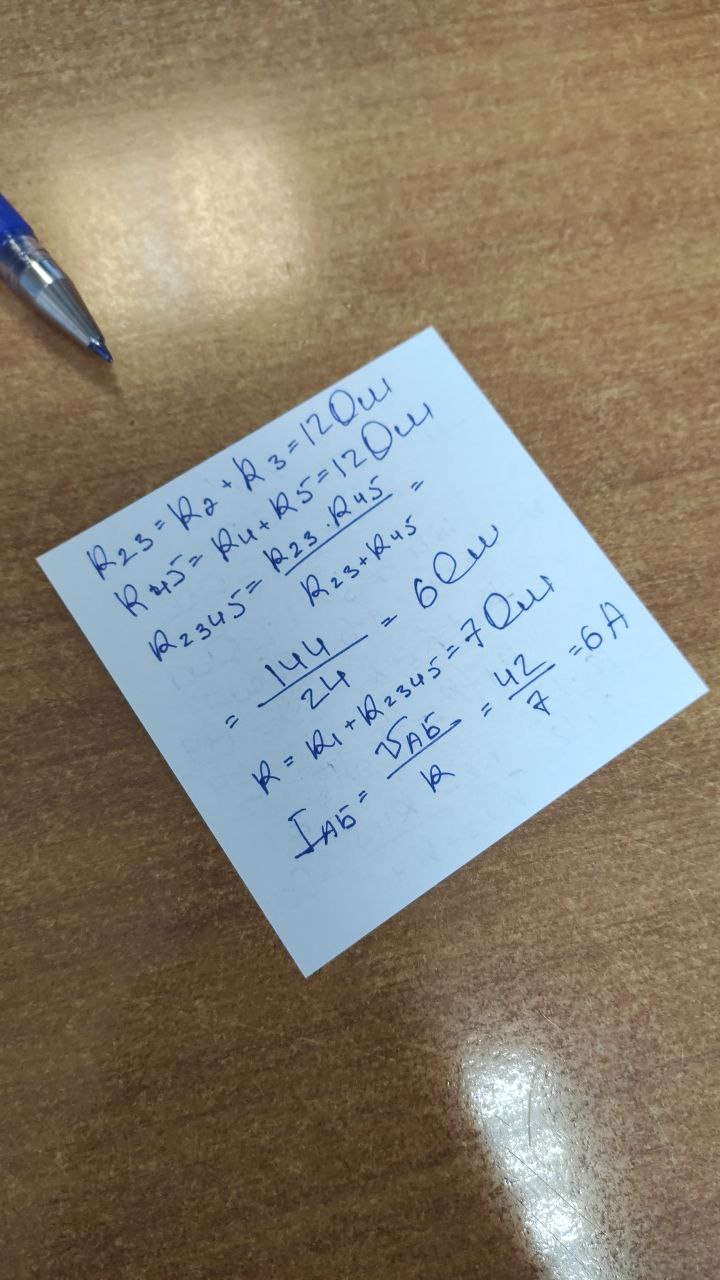 R23 = R2 + R3 = 12 Ом
R45 = R4 + R5 = 12 Ом
R2345 = R23 · R45 / R23 + R45 =
= 144 / 24 = 6 Ом
R = R1 + R2345 = 7 Ом
IАБ = UАБ / R = 42 / 7 = 6 А